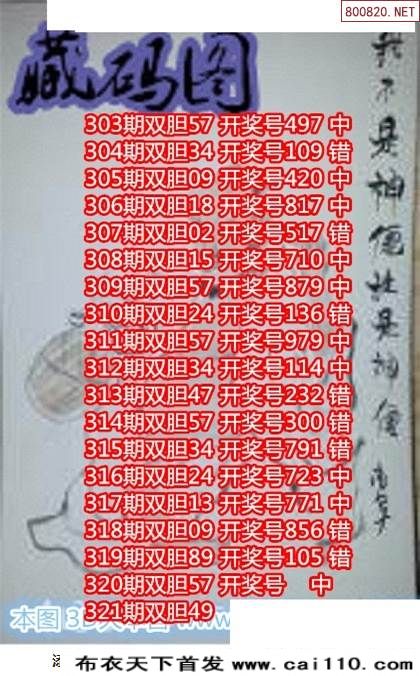 800820.NET
藏码图
我不是神
但比是神
303期双胆57 开奖号497 中
304期双胆34 开奖号109 错
305期双胆09 开奖号420 中
306期双胆18 开奖号817 中
307期双胆02 开奖号517 错
308期双胆15 开奖号710 中
309期双胆57 开奖号879 中
310期双胆24 开奖号136 错
311期双胆57 开奖号979 中
312期双胆34 开奖号114 中
313期双胆47 开奖号232 错
314期双胆57 开奖号300 错
315期双胆34 开奖号791 错
316期双胆24 开奖号723 中
317期双胆13 开奖号771 中
318期双胆09 开奖号856 错
319期双胆89 开奖号105 错
320期双胆57 开奖号 中
321期双胆49
本图
布衣天下首发 www.cai110.com